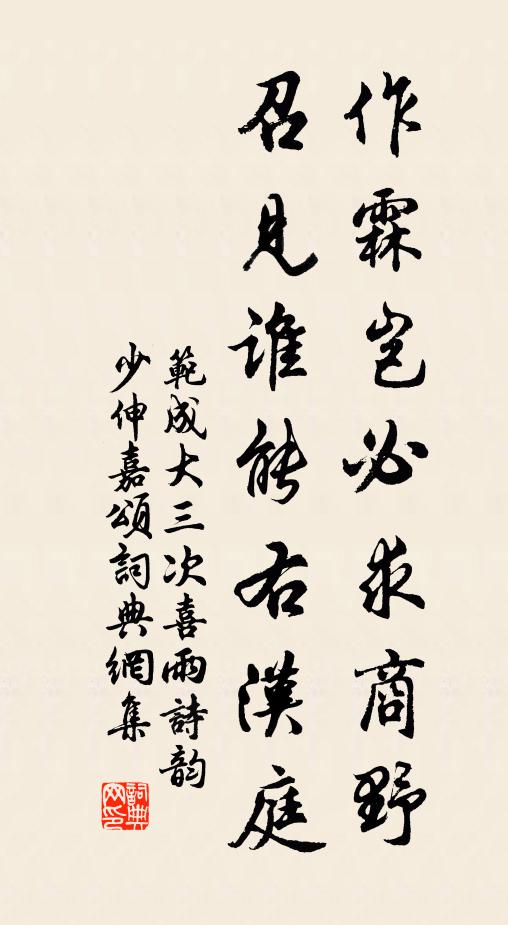 作霖岂必求商野
召見誰能右漢庭
範成大三次喜雨詩韵
少伸嘉頌詞典網集
詞典
网印